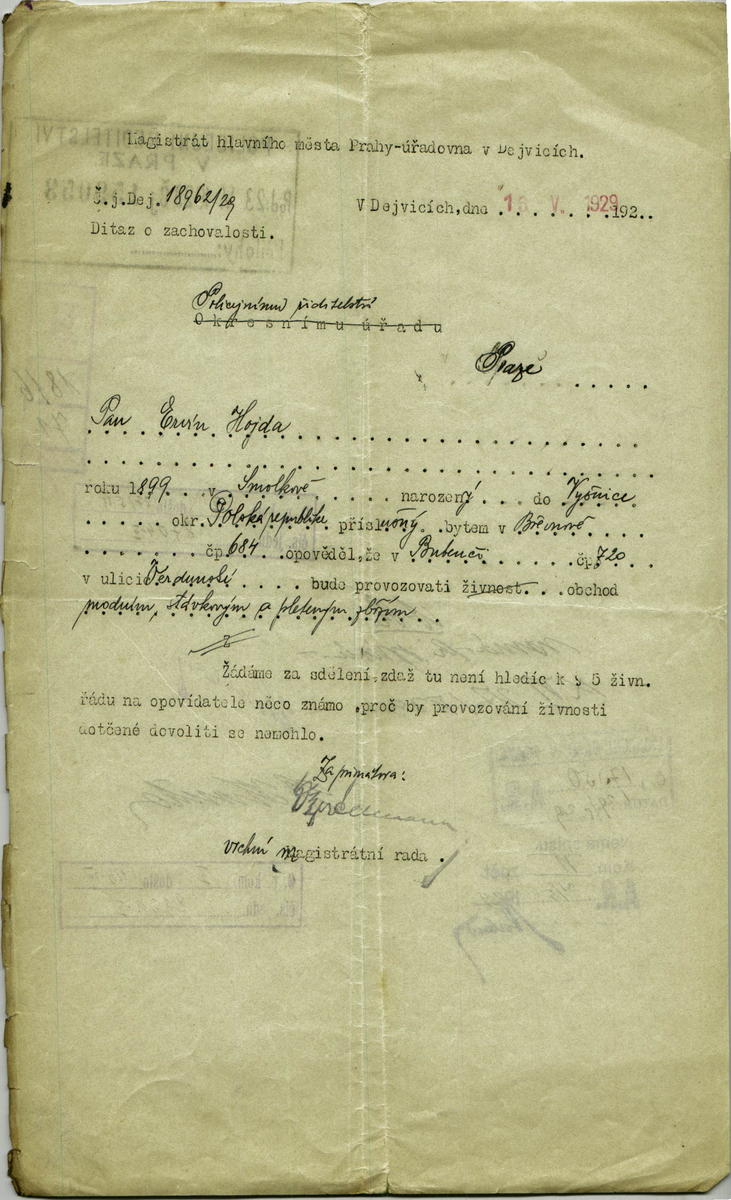 Magistrát hlavního města Prahy-úřadovna v Dejvicích.
Č.j.Dej. 18962/29
V Dejvicích, dne 16. V. 1929 192..
Ditaz o zachovalosti.
Policejnímu ředitelství
Okresnímu úřadu
Praze
Pan Ervín Hojda
roku 1899 v Smolkově narozený do Vyžnice
okr. Polská republika příslušný bytem v Břevnově
čp. 684 opověděl, že v Bubenči čp. 720
v ulici Verdunské bude provozovati živnost obchod
modním, stávkovým a pleteným zbožím
Žádáme za sdělení, zdaž tu není hledíc k § 5 živn.
řádu na opovídatele něco známo, proč by provozování živnosti
dotčené dovoliti se nemohlo.
Za primátora:
vrchní magistrátní rada.